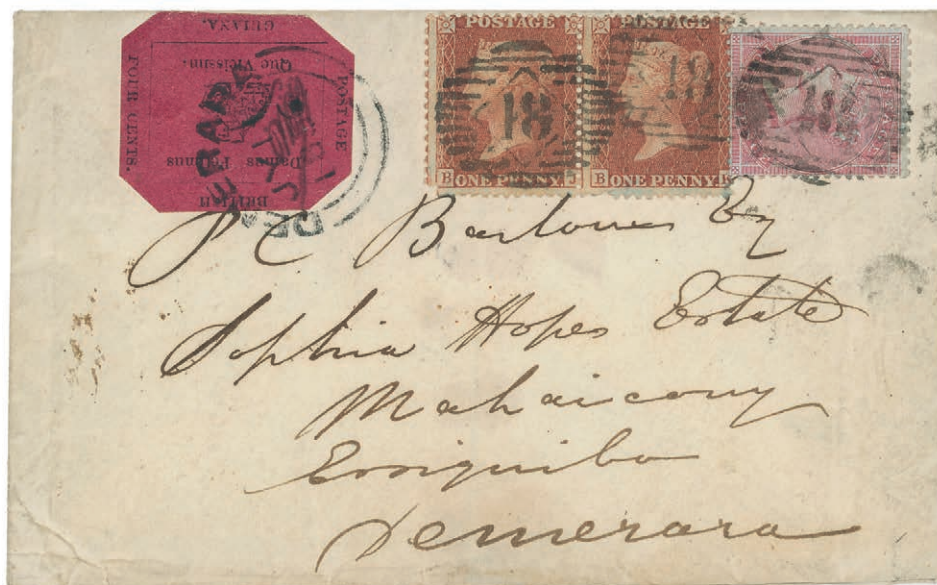 BRITISH
GUIANA.
POSTAGE
FOUR CENTS.
Damus Petimus
Que Vicissim.
POSTAGE
B ONE PENNY J
18
POSTAGE
B ONE PENNY
18
P C Barlowes Esq
Sophia Hopes Estate
Mahaicony
Essiquibo
Demerara